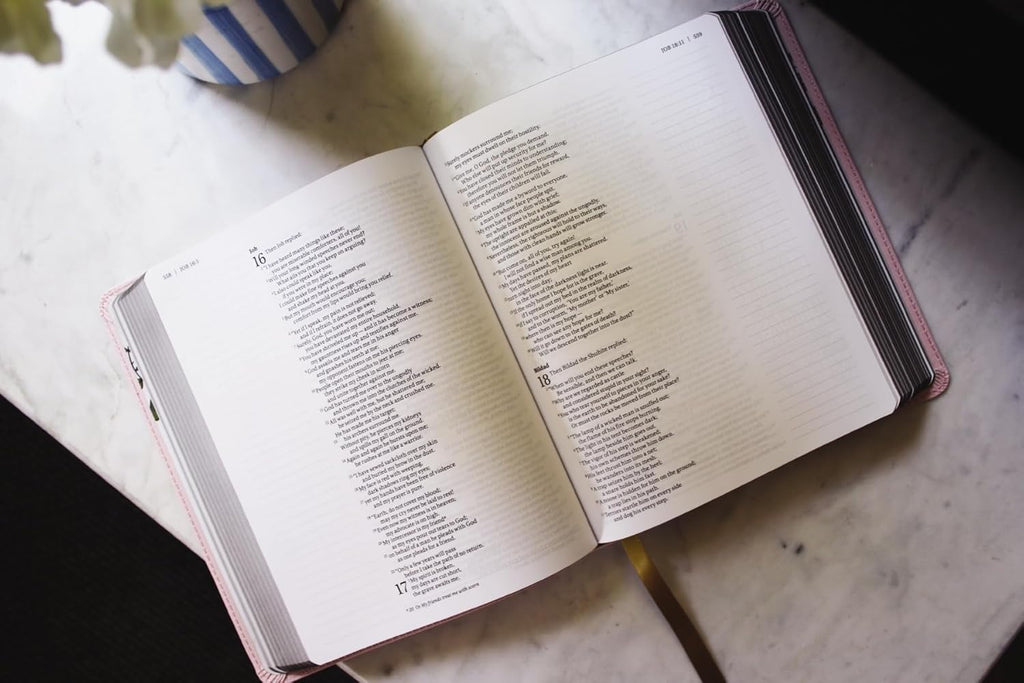 558 | JOB 16:1
Job
16 Then Job replied:
2 "I have heard many things like these;
you are miserable comforters, all of you!
3 Will your long-winded speeches never end?
What ails you that you keep on arguing?
4 I also could speak like you,
if you were in my place;
I could make fine speeches against you
and shake my head at you.
5 But my mouth would encourage you;
comfort from my lips would bring you relief.
6 "Yet if I speak, my pain is not relieved;
and if I refrain, it does not go away.
7 Surely, God, you have worn me out;
you have devastated my entire household.
8 You have shriveled me up — and it has become a witness;
my gauntness rises up and testifies against me.
9 God assails me and tears me in his anger
and gnashes his teeth at me;
my opponent fastens on me his piercing eyes.
10 People open their mouths to jeer at me;
they strike my cheek in scorn
and unite together against me.
11 God has turned me over to the ungodly
and thrown me into the clutches of the wicked.
12 All was well with me, but he shattered me;
he seized me by the neck and crushed me.
He has made me his target;
13 his archers surround me.
Without pity, he pierces my kidneys
and spills my gall on the ground.
14 Again and again he bursts upon me;
he rushes at me like a warrior.
15 "I have sewed sackcloth over my skin
and buried my brow in the dust.
16 My face is red with weeping,
dark shadows ring my eyes;
17 yet my hands have been free of violence
and my prayer is pure.
18 "Earth, do not cover my blood;
may my cry never be laid to rest!
19 Even now my witness is in heaven;
my advocate is on high.
20 My intercessor is my friend
as my eyes pour out tears to God;
21 on behalf of a man he pleads with God
as one pleads for a friend.
22 "Only a few years will pass
before I take the path of no return.
17 1 My spirit is broken,
my days are cut short,
the grave awaits me.
20 Or My friends treat me with scorn
JOB 18:11 | 559
2 Surely mockers surround me;
my eyes must dwell on their hostility.
3 "Give me, O God, the pledge you demand.
Who else will put up security for me?
4 You have closed their minds to understanding;
therefore you will not let them triumph.
5 If anyone denounces their friends for reward,
the eyes of their children will fail.
6 "God has made me a byword to everyone,
a man in whose face people spit.
7 My eyes have grown dim with grief;
my whole frame is but a shadow.
8 The upright are appalled at this;
the innocent are aroused against the ungodly.
9 Nevertheless, the righteous will hold to their ways,
and those with clean hands will grow stronger.
10 "But come on, all of you, try again!
I will not find a wise man among you.
11 My days have passed, my plans are shattered.
Yet the desires of my heart
12 turn night into day;
in the face of the darkness light is near.
13 If the only home I hope for is the grave,
if I spread out my bed in the realm of darkness,
14 if I say to corruption, 'You are my father,'
and to the worm, 'My mother' or 'My sister,'
15 where then is my hope —
who can see any hope for me?
16 Will it go down to the gates of death?
Will we descend together into the dust?"
Bildad
18 Then Bildad the Shuhite replied:
2 "When will you end these speeches?
Be sensible, and then we can talk.
3 Why are we regarded as cattle
and considered stupid in your sight?
4 You who tear yourself to pieces in your anger,
is the earth to be abandoned for your sake?
Or must the rocks be moved from their place?
5 "The lamp of a wicked man is snuffed out;
the flame of his fire stops burning.
6 The light in his tent becomes dark;
the lamp beside him goes out.
7 The vigor of his step is weakened;
his own schemes throw him down.
8 His feet thrust him into a net;
he wanders into its mesh.
9 A trap seizes him by the heel;
a snare holds him fast.
10 A noose is hidden for him on the ground;
a trap lies in his path.
11 Terrors startle him on every side
and dog his every step.